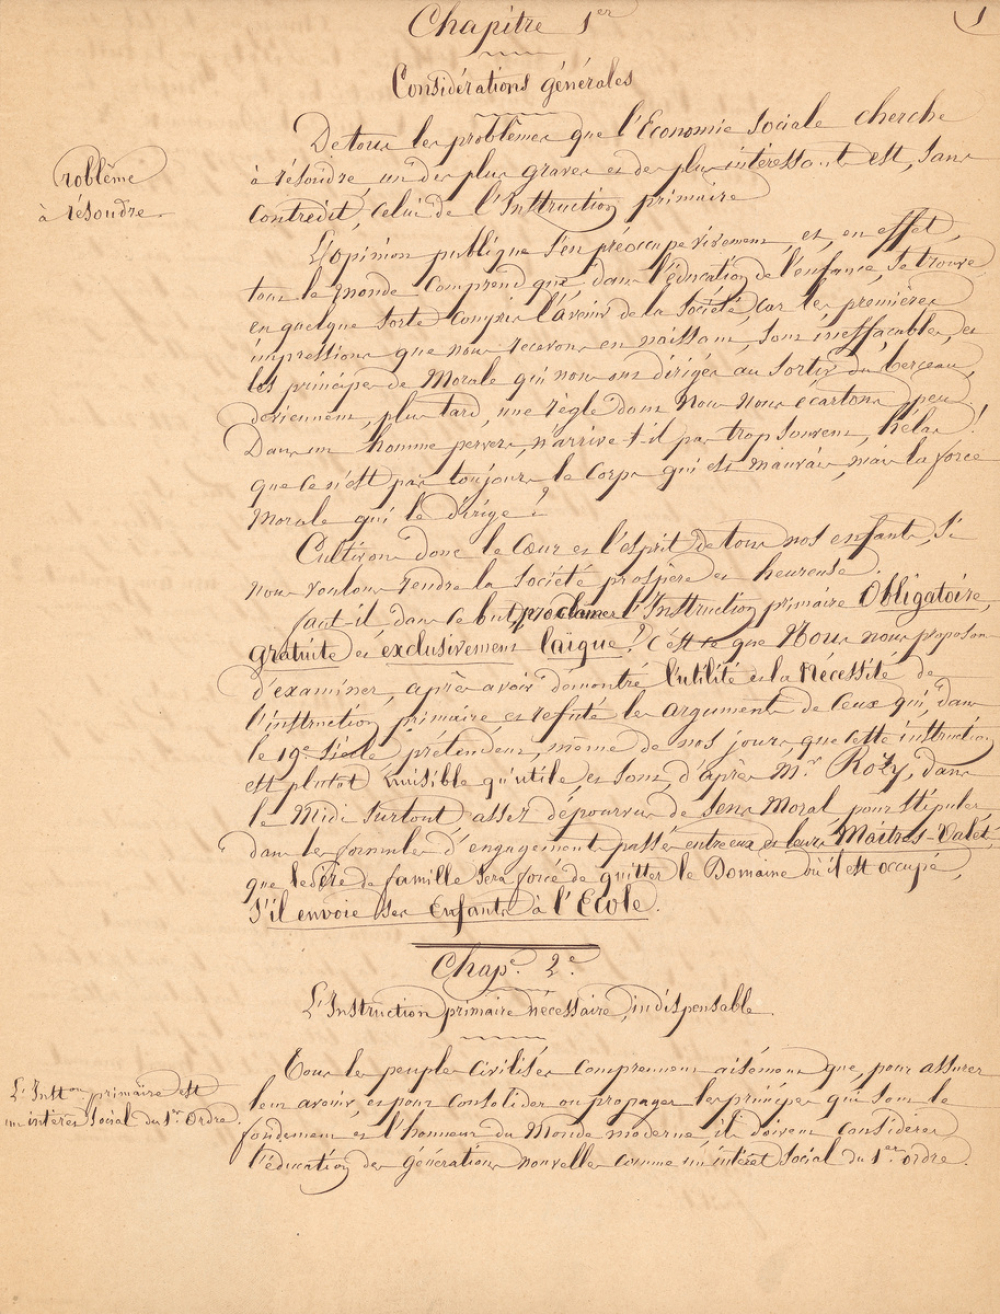 1
Chapitre 1er
Considérations générales
Problème
à résoudre.
De tous les problèmes que l'Economie Sociale cherche
à résoudre, un des plus graves et des plus intéressants est, sans
contredit, celui de l'Instruction primaire
L'opinion publique s'en préoccupe vivement, et, en effet,
tout le monde comprend que, dans l'éducation de l'enfance, se trouve
en quelque sorte compris l'avenir de la Société, car les premières
impressions que nous recevons en naissant, sont ineffaçables, et
les principes de Morale qui nous ont dirigés au sortir du berceau,
deviennent, plus tard, une règle dont Nous Nous écartons peu.
Dans un homme pervers, n'arrive-t-il pas trop souvent, hélas!
que ce n'est pas toujours le Corps qui est mauvais, mais la force
Morale qui le dirige?
Cultivons donc le Cœur et l'esprit de tous nos enfants, Si
nous voulons rendre la Société prospère et heureuse.
faut-il, dans ce but, proclamer l'Instruction primaire Obligatoire,
gratuite et exclusivement laïque? C'est ce que Nous nous proposons
d'examiner, après avoir démontré l'utilité et la Nécessité de
l'instruction primaire et réfuté les arguments de Ceux qui, dans
le 19e Siècle prétendent, même de nos jours, que cette instruction
est plutôt nuisible qu'utile, et sont, d'après Mr Rozy, dans
le Midi surtout, assez dépourvus de Sens Moral pour stipuler
dans les formules d'engagement passés entre eux et leurs Maîtres-Valets,
que le Père de famille sera forcé de quitter le Domaine où il est occupé,
S'il envoie ses Enfants à l'Ecole.
Chape. 2e.
L'Instruction primaire nécessaire, indispensable.
L'Inston primaire est
un intérêt Social du 1er Ordre.
Tous les peuples civilisés comprennent aisément que, pour assurer
leur avenir, et pour consolider ou propager les principes qui sont le
fondement et l'honneur du Monde moderne, ils doivent considérer
l'éducation des générations nouvelles comme un intérêt Social du 1er ordre.